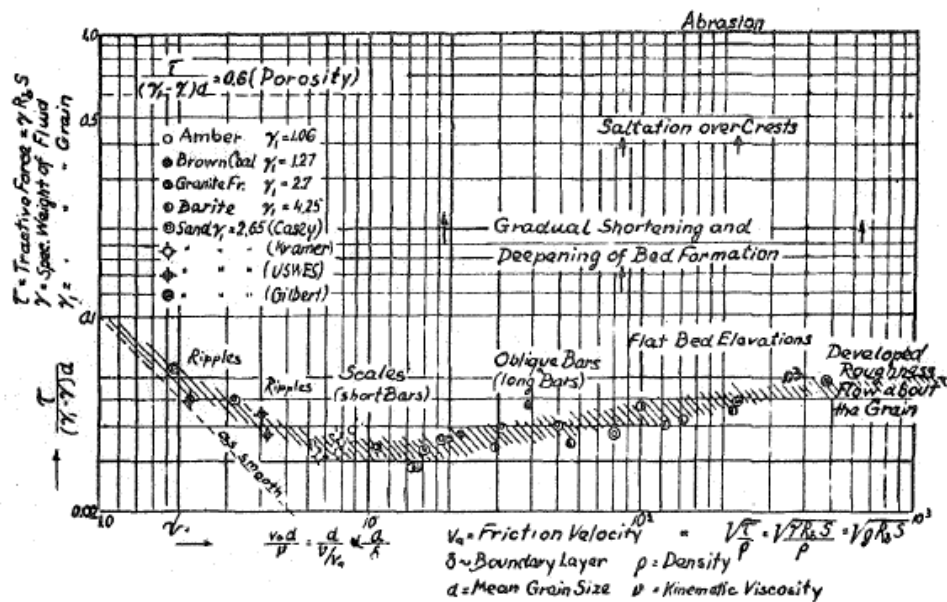 Abrasion
1.0
τ/(γ₁-γ)d = 0.6 (Porosity)
0.5
Saltation over Crests
○ Amber γ₁=1.06
Brown Coal γ₁=1.27
Granite Fr. γ₁=2.7
Barite γ₁=4.25
Sand γ₁=2.65 (Casey)
" " " (Kramer)
" " " (USWES)
" " " (Gilbert)
τ = Tractive Force = γ R_b S
γ = Spec. Weight of Fluid
γ₁ = " " " Grain
Gradual Shortening and
Deepening of Bed Formation
0.1
Ripples
Ripples
Scales
(short Bars)
Oblique Bars
(long Bars)
Flat Bed Elevations
Developed
Roughness
Flow about
the Grain
τ/(γ₁-γ)d
as smooth
0.02
1.0
10
10²
10³
d/(ν/v*)
v* = Friction Velocity = √τ/ρ = √γR_bS/ρ = √gR_bS
δ ~ Boundary Layer ρ = Density
d = Mean Grain Size ν = Kinematic Viscosity